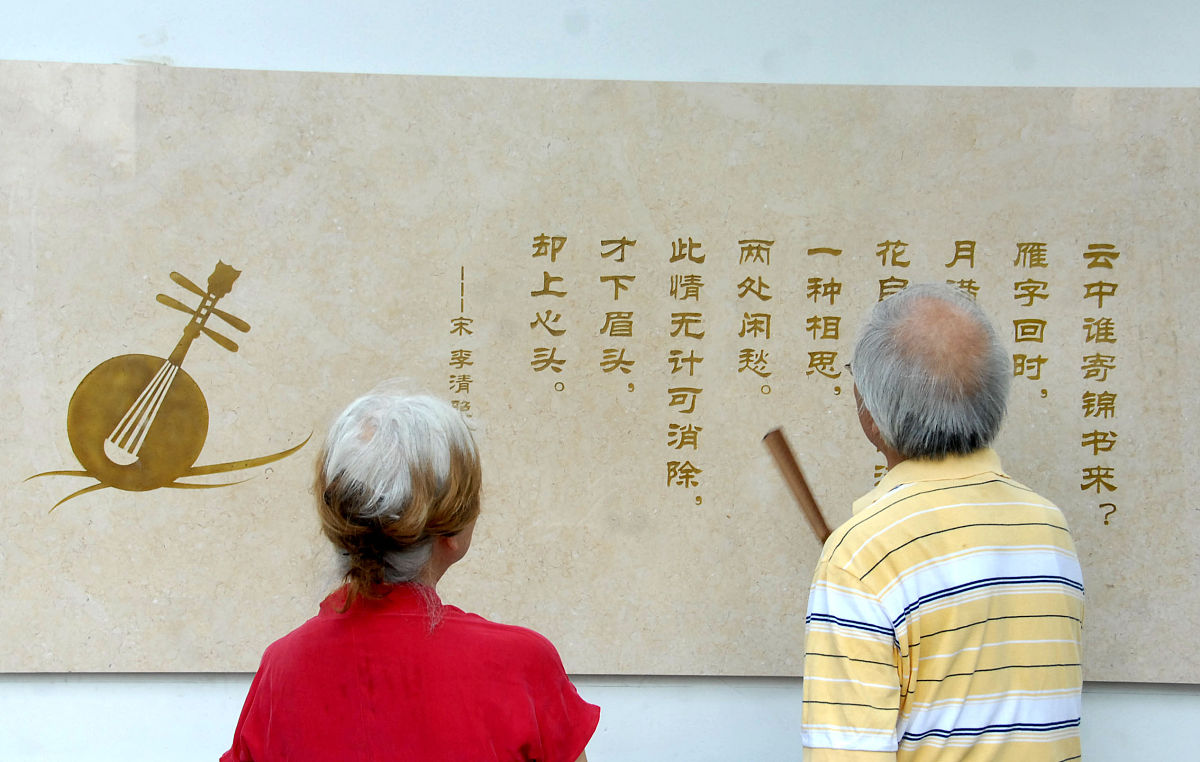 云中谁寄锦书来？
雁字回时，
月满
花自
一种相思，
两处闲愁。
此情无计可消除，
才下眉头，
却上心头。
——宋 李清照